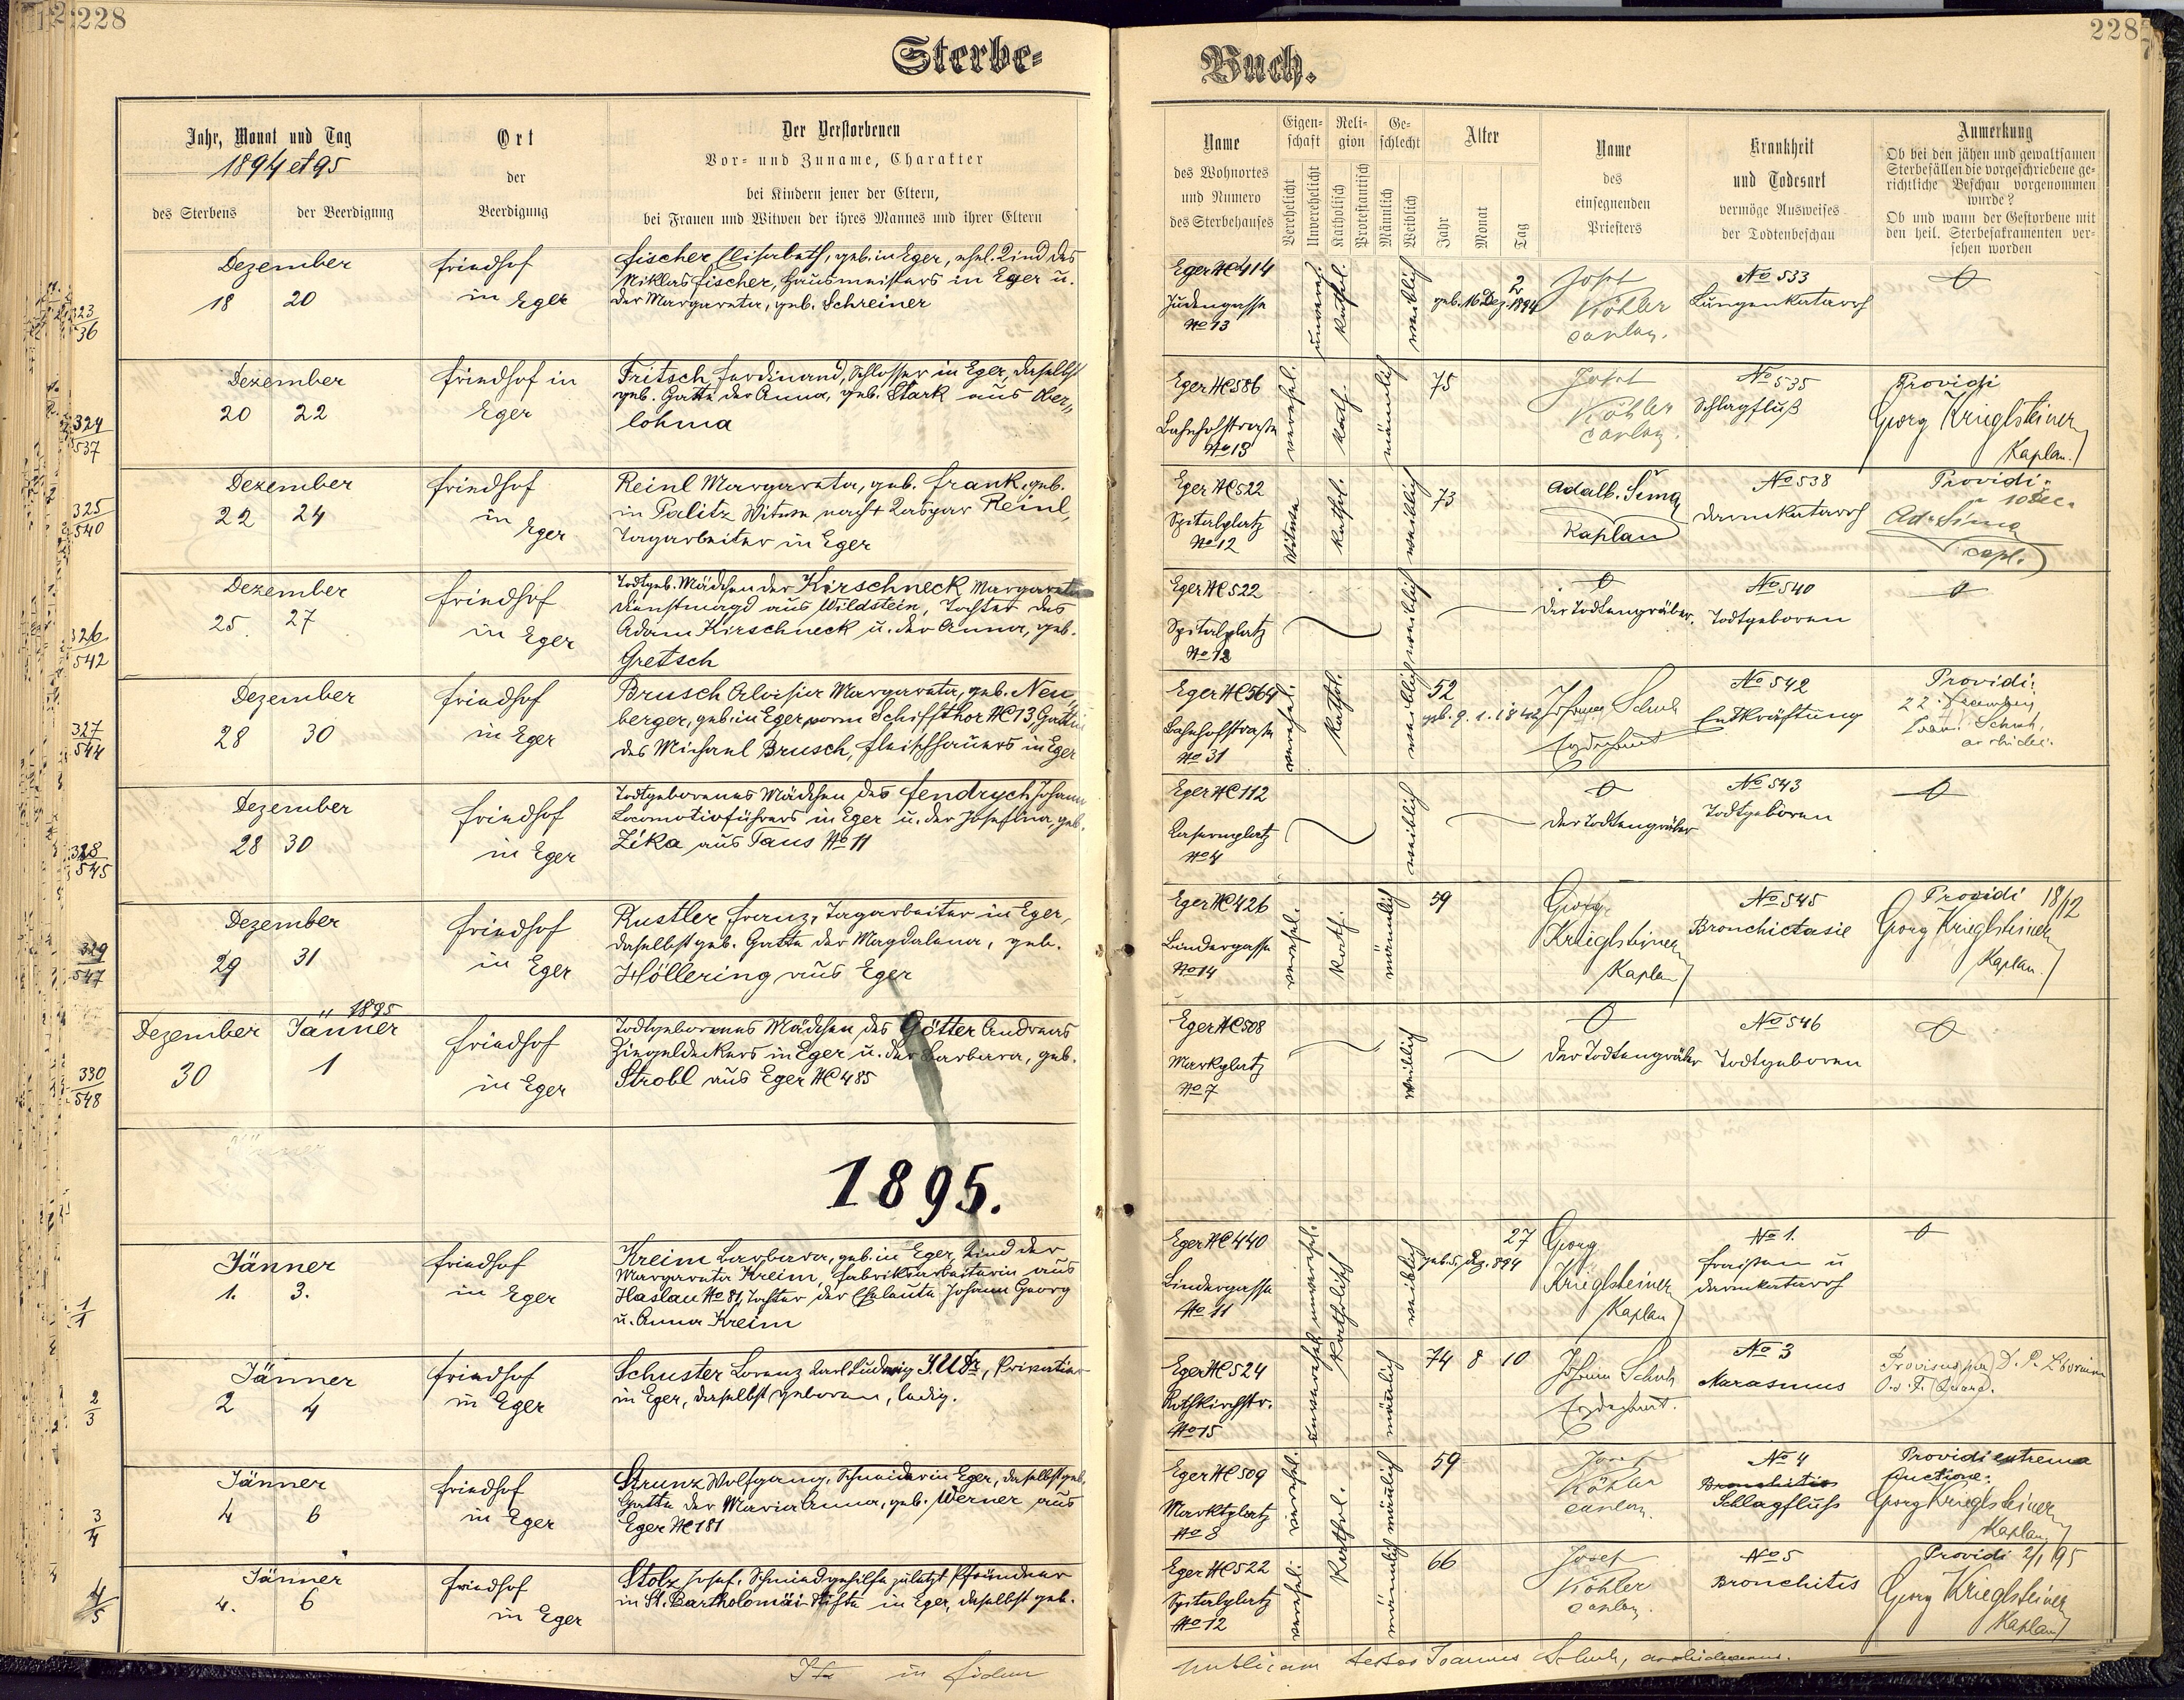 228
Sterbe-
Jahr, Monat und Tag
1894 et 95
des Sterbens
der Beerdigung
Ort
der
Beerdigung
Der Verstorbenen
Vor- und Zuname, Charakter
bei Kindern jener der Eltern,
bei Frauen und Witwen der ihres Mannes und ihrer Eltern
323
36
Dezember
18 20
Friedhof
in Eger
Fischer Elisabeth, geb. in Eger, ehel. Kind des
Niklas Fischer, Hausmeisters in Eger u.
der Margareta, geb. Schreiner
324
537
Dezember
20 22
Friedhof in
Eger
Fritsch Ferdinand, Schlosser in Eger, daselbst
geb. Gatte der Anna, geb. Stark aus Ober-
lohma
325
540
Dezember
22 24
Friedhof
in
Eger
Reinl Margareta, geb. Frank, geb.
in Palitz Witwe nach + Kaspar Reinl,
Tagarbeiter in Eger
326
542
Dezember
25. 27
Friedhof
in Eger
Todtgeb. Mädchen der Kirschneck Margareta
Dienstmagd aus Wildstein, Tochter des
Adam Kirschneck u. der Anna, geb.
Gretsch
327
544
Dezember
28 30
Friedhof
in Eger
Brusch Aloisia Margareta, geb. Neu-
berger, geb. in Eger vorm Schiffthor NC 13, Gattin
des Michael Brusch, Fleischhauers in Eger
328
545
Dezember
28 30
Friedhof
in Eger
Todtgeborenes Mädchen des Fendrych Johann
Locomotivführers in Eger u. der Josefina, geb.
Zika aus Taus No 11
329
547
Dezember
29 31
Friedhof
in Eger
Rustler Franz, Tagarbeiter in Eger,
daselbst geb. Gatte der Magdalena, geb.
Höllering aus Eger
330
548
1895
Dezember Jänner
30 1
Friedhof
in Eger
Todtgeborenes Mädchen des Götter Andreas
Ziegeldeckers in Eger u. der Barbara, geb.
Strobl aus Eger NC 485
1895.
1
1
Jänner
1. 3.
Friedhof
in Eger
Kreim Barbara, geb. in Eger, Kind der
Margareta Kreim, Fabriksarbeiterin aus
Haslau No 81, Tochter der Eheleute Johann Georg
u. Anna Kreim
2
3
Jänner
2 4
Friedhof
in Eger
Schuster Lorenz Karl Ludwig J.U.Dr, Privatier
in Eger, daselbst geboren, ledig.
3
4
Jänner
4 6
Friedhof
in Eger
Strunz Wolfgang, Schneider in Eger, daselbst geb.
Gatte der Maria Anna, geb. Werner aus
Eger NC 181
4
5
Jänner
4. 6
Friedhof
in Eger
Stolz Josef, Schmiedgehilfe zuletzt Pfründner
in St. Bartholomäi-Stifte in Eger, daselbst geb.
Ita in fidem
228
Buch.
Name
des Wohnortes
und Numero
des Sterbehauses
Eigen-
schaft
Verehelicht
Unverehelicht
Reli-
gion
Katholisch
Protestantisch
Ge-
schlecht
Männlich
Weiblich
Alter
Jahr
Monat
Tag
Name
des
einsegnenden
Priesters
Krankheit
und Todesart
vermöge Ausweises
der Todtenbeschau
Anmerkung
Ob bei den jähen und gewaltsamen
Sterbefällen die vorgeschriebene ge-
richtliche Beschau vorgenommen
wurde?
Ob und wann der Gestorbene mit
den heil. Sterbesakramenten ver-
sehen worden
Eger NC 414
Judengasse
No 13
unvereh.
kathol.
weiblich
2
geb. 16. Dez. 1894
Josef
Köhler
caplan.
No 533
Lungenkatarrh
Eger NC 586
Bahnhofstrasse
No 13
verehel.
kath.
männlich
75
Josef
Köhler
caplan.
No 535
Schlagfluß
Providi
Georg Krieglsteiner
Kaplan.
Eger NC 522
Spitalplatz
No 12
Witwe
kathol.
weiblich
73
Adalb. Šíma
Kaplan
No 538
Darmkatarrh
Providi
10 Dec.
Ad. Šíma
capl.
Eger NC 522
Spitalplatz
No 12
weiblich
Der Todtengräber.
No 540
Todtgeboren
Eger NC 564
Bahnhofstrasse
No 31
verehel.
kathol.
weiblich
52
geb. 9. 1. 1842
Johann Schuh
Erzdechant
No 542
Entkräftung
Providi
22. Decembris
Joan. Schuh,
archidec.
Eger NC 112
Kasernplatz
No 4
weiblich
Der Todtengräber
No 543
Todtgeboren
Eger NC 426
Bindergasse
No 14
verehel.
kath.
männlich
59
Georg
Krieglsteiner
Kaplan
No 545
Bronchictasie
Providi 18/12
Georg Krieglsteiner
Kaplan.
Eger NC 508
Markplatz
No 7
weiblich
Der Todtengräber
No 546
Todtgeboren
Eger NC 440
Bindergasse
No 11
unverehel.
katholisch
weiblich
27
geb. 5. Dez. 894
Georg
Krieglsteiner
Kaplan
No 1.
Fraisen u
Darmkatarrh
Eger NC 524
Rothkirchstr.
No 15
unverehel.
männlich
74 8 10
Johann Schuh
Erzdechant.
No 3
Marasmus
Provisus per D. P.
Eger NC 509
Marktplatz
No 8
verehel.
kathol.
männlich
59
Josef
Köhler
caplan.
No 4
Bronchitis
Schlagfluss
Providi extrema
unctione.
Georg Krieglsteiner
Kaplan
Eger NC 522
Spitalplatz
No 12
verehel.
männlich
66
Josef
Köhler
caplan.
No 5
Bronchitis
Providi 2/1 95
Georg Krieglsteiner
Kaplan
publicam testor Joannes Schuh, archidecanus.